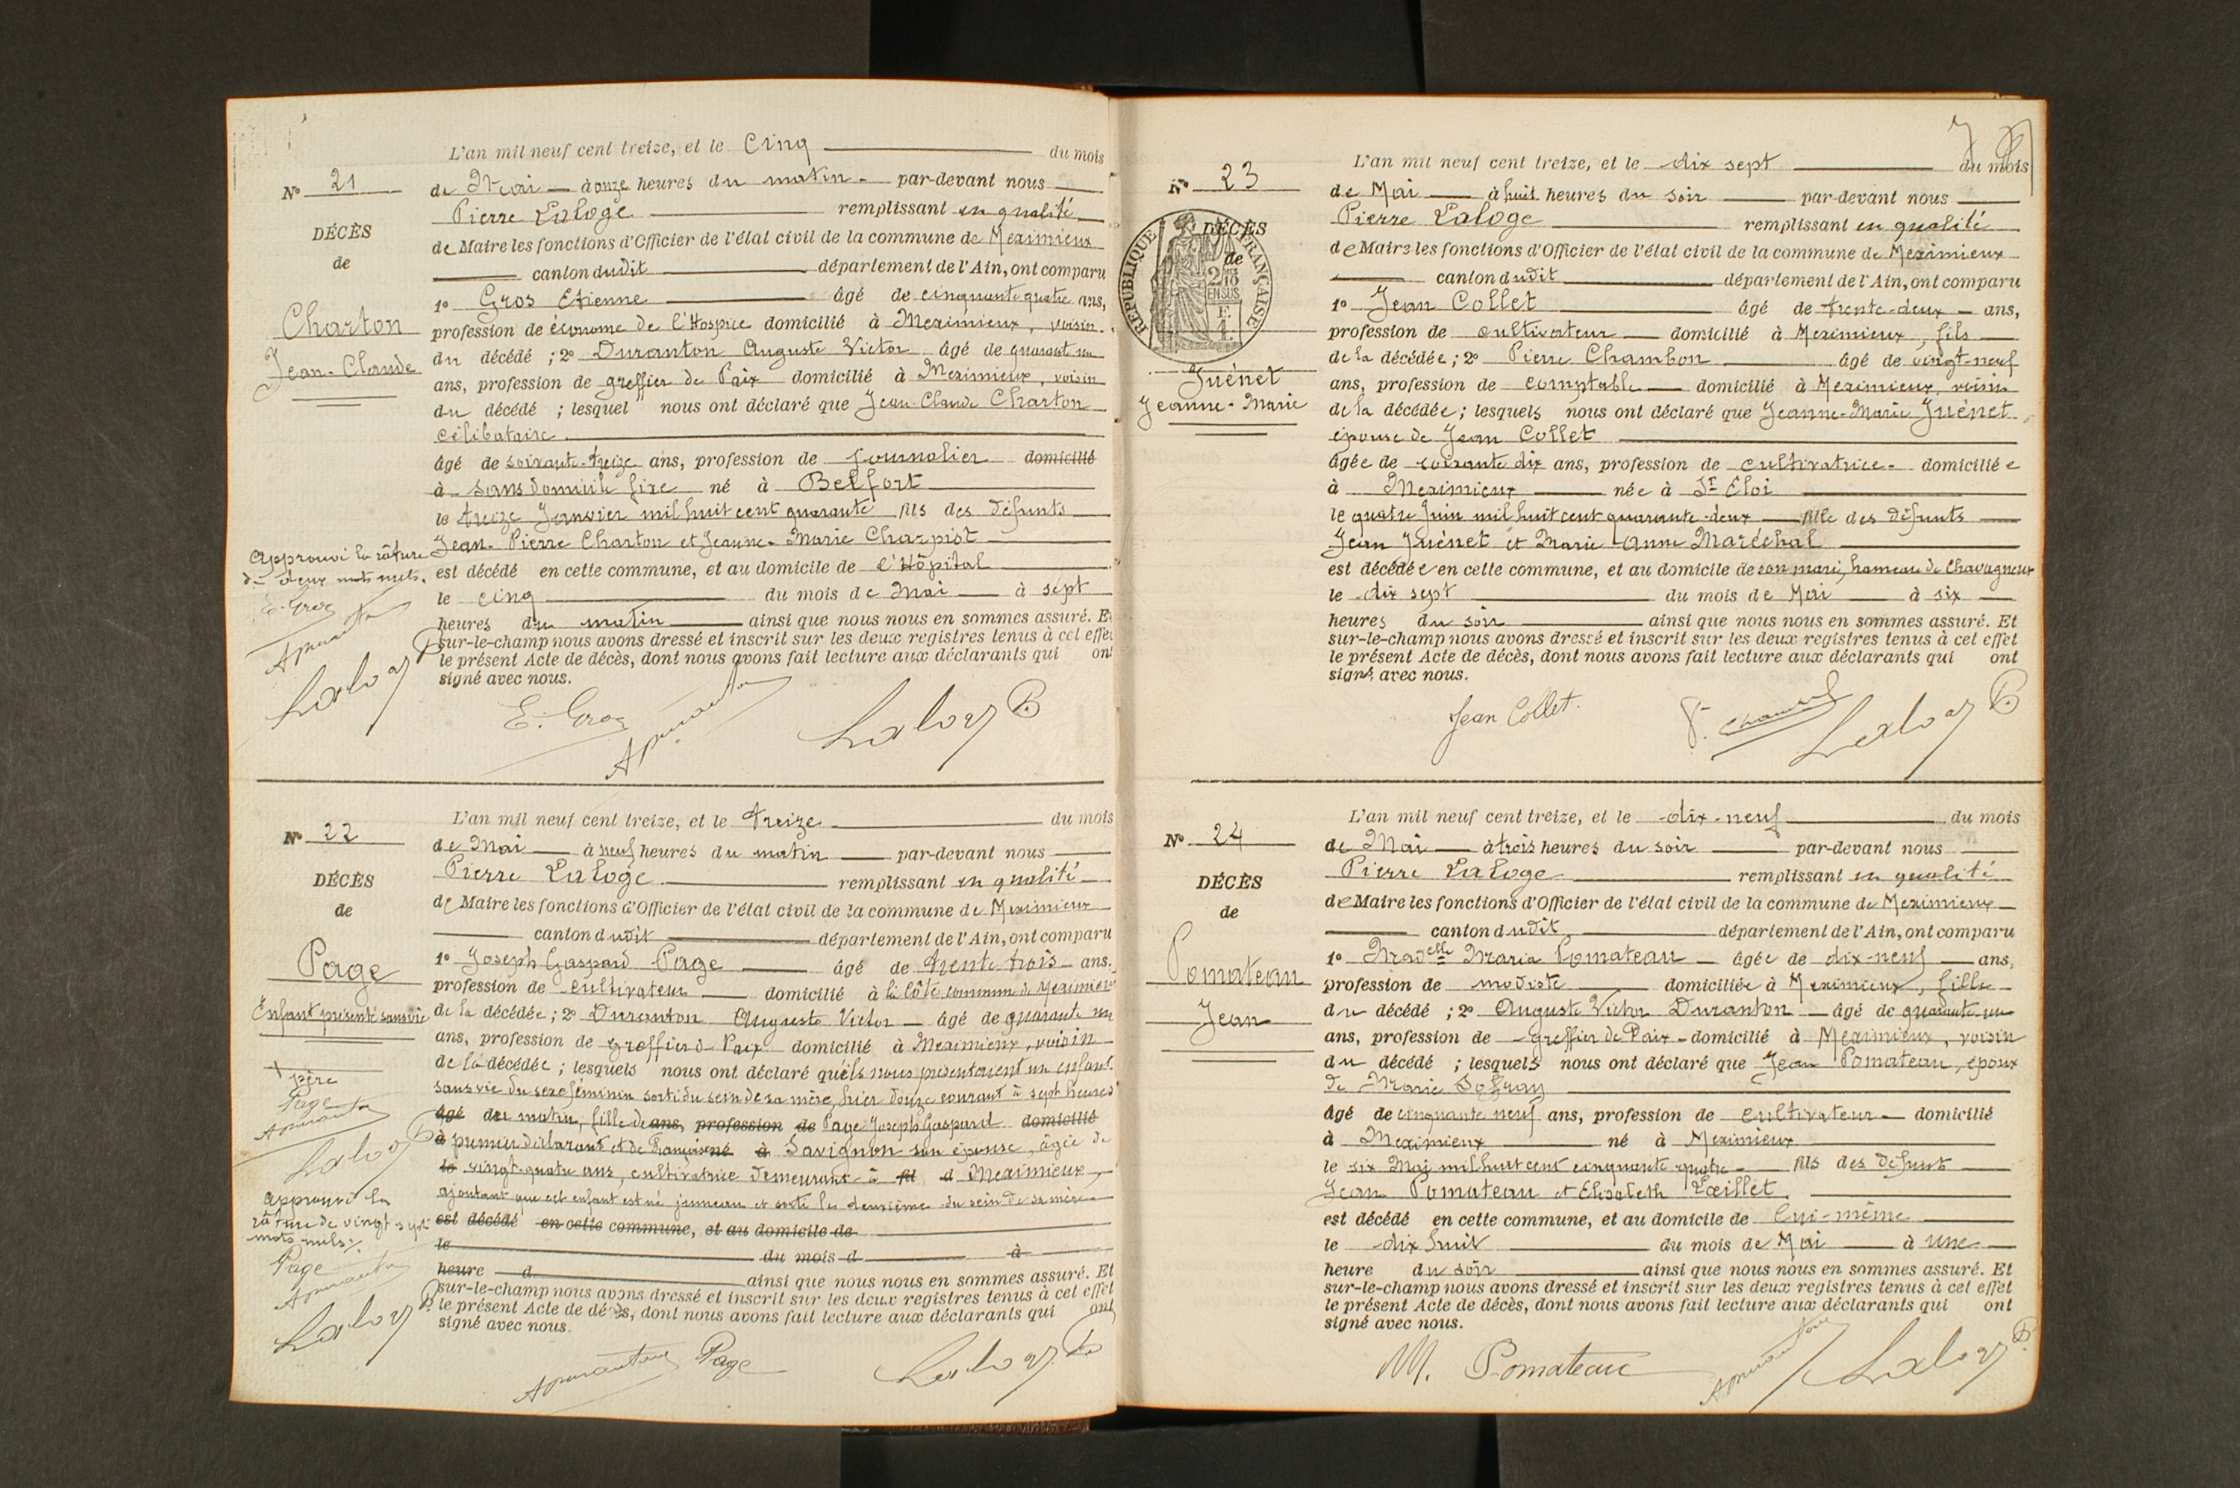 L'an mil neuf cent treize, et le cinq du mois
N° 21
de Mai à onze heures du matin par-devant nous
Pierre Laloge remplissant en qualité
DÉCÈS
de Maire les fonctions d'Officier de l'état civil de la commune de Meximieux
de
canton dudit département de l'Ain, ont comparu
1° Gros Etienne âgé de cinquante quatre ans,
Charton
profession de économe de l'Hospice domicilié à Meximieux, voisin
Jean-Claude
du décédé ; 2° Duranton Auguste Victor âgé de quarant un
ans, profession de greffier de Paix domicilié à Meximieux, voisin
du décédé ; lesquel nous ont déclaré que Jean-Claude Charton
célibataire
âgé de soixante-treize ans, profession de journalier domicilié
à sans domicile fixe né à Belfort
le treize Janvier mil huit cent quarante fils des défunts
Jean-Pierre Charton et Jeanne-Marie Charpiot
Approuvé la râture
de deux mots nuls.
est décédé en cette commune, et au domicile de l'Hôpital
le cinq du mois de Mai à sept
E. Gros
heures du matin ainsi que nous nous en sommes assuré. Et
sur-le-champ nous avons dressé et inscrit sur les deux registres tenus à cet effet
le présent Acte de décès, dont nous avons fait lecture aux déclarants qui ont
signé avec nous.
Laloge P.
E. Gros
Laloge P.
L'an mil neuf cent treize, et le treize du mois
N° 22
de Mai à neuf heures du matin par-devant nous
Pierre Laloge remplissant en qualité
DÉCÈS
de Maire les fonctions d'Officier de l'état civil de la commune de Meximieux
de
canton dudit département de l'Ain, ont comparu
Page
1° Joseph Gaspard Page âgé de trente trois ans.
profession de cultivateur domicilié à la Côte commune de Meximieux
Enfant présenté sans vie
de la décédée ; 2° Duranton Auguste Victor âgé de quarante un
ans, profession de greffier d Paix domicilié à Meximieux, voisin
de la décédée ; lesquels nous ont déclaré qu'ils nous présentaient un enfant
sans vie du sexe féminin sorti du sein de sa mère, hier douze courant à sept heures
père
Page
âgé du matin, fille de ans, profession de Page Joseph Gaspard domicilié
à premier déclarant et de Françoise né à Savignon son épouse, âgée de
le vingt-quatre ans, cultivatrice demeurant à fil d Meximieux,
ajoutant que cet enfant est né jumeau et sorti le deuxième du sein de sa mère
Laloge P.
approuvé la
râture de vingt sept
mots nuls.
est décédé en cette commune, et au domicile de
le du mois d à
Page
heure d ainsi que nous nous en sommes assuré. Et
sur-le-champ nous avons dressé et inscrit sur les deux registres tenus à cet effet
le présent Acte de décès, dont nous avons fait lecture aux déclarants qui ont
signé avec nous.
Laloge P.
Page
Laloge P.
7
L'an mil neuf cent treize, et le dix sept du mois
N° 23
de Mai à huit heures du soir par-devant nous
Pierre Laloge remplissant en qualité
DÉCÈS
de Maire les fonctions d'Officier de l'état civil de la commune de Meximieux
de
canton dudit département de l'Ain, ont comparu
RÉPUBLIQUE FRANÇAISE
2/10
EN SUS
1° Jean Collet âgé de trente-deux ans,
profession de cultivateur domicilié à Meximieux, fils
de la décédée ; 2° Pierre Chambon âgé de vingt-neuf
Juénet
Jeanne-Marie
ans, profession de comptable domicilié à Meximieux, voisin
de la décédée ; lesquels nous ont déclaré que Jeanne-Marie Juénet
épouse de Jean Collet
âgée de soixante dix ans, profession de cultivatrice domiciliée
à Meximieux née à St Eloi
le quatre Juin mil huit cent quarante-deux fille des défunts
Jean Juénet et Marie-Anne Maréchal
est décédée en cette commune, et au domicile de son mari, hameau de Chavagneux
le dix sept du mois de Mai à six
heures du soir ainsi que nous nous en sommes assuré. Et
sur-le-champ nous avons dressé et inscrit sur les deux registres tenus à cet effet
le présent Acte de décès, dont nous avons fait lecture aux déclarants qui ont
signé avec nous.
Jean Collet
Laloge P.
L'an mil neuf cent treize, et le dix-neuf du mois
N° 24
de Mai à trois heures du soir par-devant nous
Pierre Laloge remplissant en qualité
DÉCÈS
de Maire les fonctions d'Officier de l'état civil de la commune de Meximieux
de
canton dudit département de l'Ain, ont comparu
Pomateau
1° Madelle Maria Pomateau âgée de dix-neuf ans,
profession de modiste domiciliée à Meximieux, fille
Jean
du décédé ; 2° Auguste Victor Duranton âgé de quarante-un
ans, profession de greffier de Paix domicilié à Meximieux, voisin
du décédé ; lesquels nous ont déclaré que Jean Pomateau, époux
de Marie
âgé de cinquante neuf ans, profession de cultivateur domicilié
à Meximieux né à Meximieux
le six Mai mil huit cent cinquante quatre fils des défunts
Jean Pomateau et Elisabeth
est décédé en cette commune, et au domicile de lui-même
le dix huit du mois de Mai à une
heure du soir ainsi que nous nous en sommes assuré. Et
sur-le-champ nous avons dressé et inscrit sur les deux registres tenus à cet effet
le présent Acte de décès, dont nous avons fait lecture aux déclarants qui ont
signé avec nous.
M. Pomateau
Laloge P.